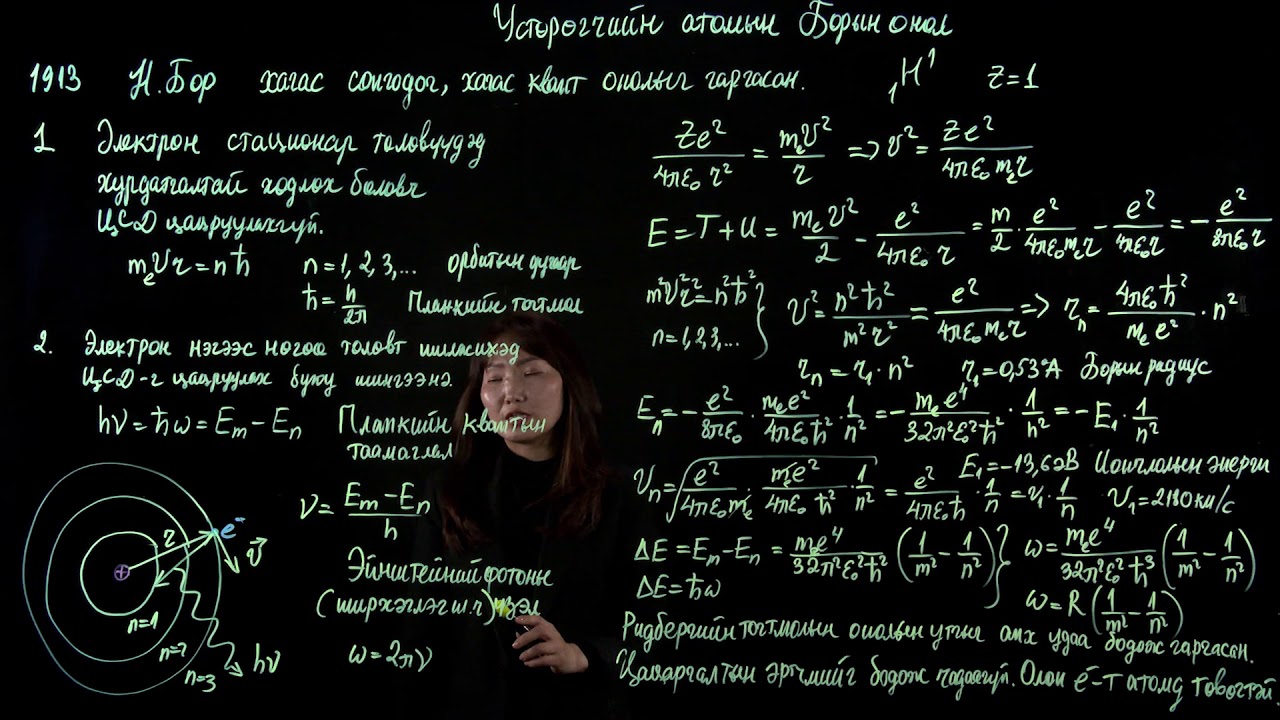 Устөрөгчийн атомын Борын онол
1913 Н.Бор хагас сонгодог, хагас квант онолыг гаргасан. ₁H¹ Z=1
1 Электрон стационар төлөвүүдэд
хурдатгалтай хөдлөх боловч
ЦСД цацруулахгүй.
mₑ𝑣r = nħ n = 1, 2, 3,... орбитын дугаар
ħ = h/2π Планкийн тогтмол
2. Электрон нэгээс нөгөө төлөвт шилжихэд
ЦСД-г цацруулах буюу шингээнэ.
hν = ħω = Eₘ − Eₙ Планкийн квантын
таамаглал
ν = (Eₘ − Eₙ)/h
Эйнштейний фотоны
(ширхэглэг ш.ч) үзэл
ω = 2πν
r e⁻ 𝑣⃗
n=1
n=2
n=3 hν
Ze²/4πε₀r² = mₑ𝑣²/r ⇒ 𝑣² = Ze²/4πε₀mₑr
E = T + U = mₑ𝑣²/2 − e²/4πε₀r = m/2 · e²/4πε₀mₑr − e²/4πε₀r = − e²/8πε₀r
m²𝑣²r² = n²ħ² } 𝑣² = n²ħ²/m²r² = e²/4πε₀mₑr ⇒ rₙ = 4πε₀ħ²/mₑe² · n²
n = 1, 2, 3,...
rₙ = r₁ · n² r₁ = 0,53 °A Борын радиус
Eₙ = − e²/8πε₀ · mₑe²/4πε₀ħ² · 1/n² = − mₑe⁴/32π²ε₀²ħ² · 1/n² = − E₁ · 1/n²
E₁ = −13,6 эВ Иончлолын энерги
𝑣ₙ = √(e²/4πε₀mₑ · mₑe²/4πε₀ħ² · 1/n²) = e²/4πε₀ħ · 1/n = 𝑣₁ · 1/n 𝑣₁ = 2180 км/с
ΔE = Eₘ − Eₙ = mₑe⁴/32π²ε₀²ħ² (1/m² − 1/n²) } ω = mₑe⁴/32π²ε₀²ħ³ (1/m² − 1/n²)
ΔE = ħω
ω = R (1/m² − 1/n²)
Ридбергийн тогтмолын онолын утгыг анх удаа бодож гаргасан.
Цацаргалтын эрчмийг бодож чадаагүй. Олон e⁻-т атомд төвөгтэй